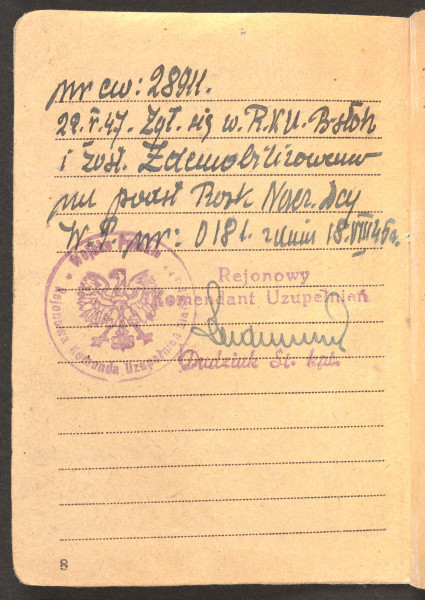 nr ew: 28911.
22.V.47. Zgł. się w R.K.U. B-stok
i zost. Zdemobilizowany
na podst Rozk Nacz. Dcy
W.P. nr: 0181. z dnia 18.VIII 45 r.
Wojsko
Rejonowa Komenda Uzupełnień
Rejonowy
Komendant Uzupełnień
Dudziuk St. kpt.
8